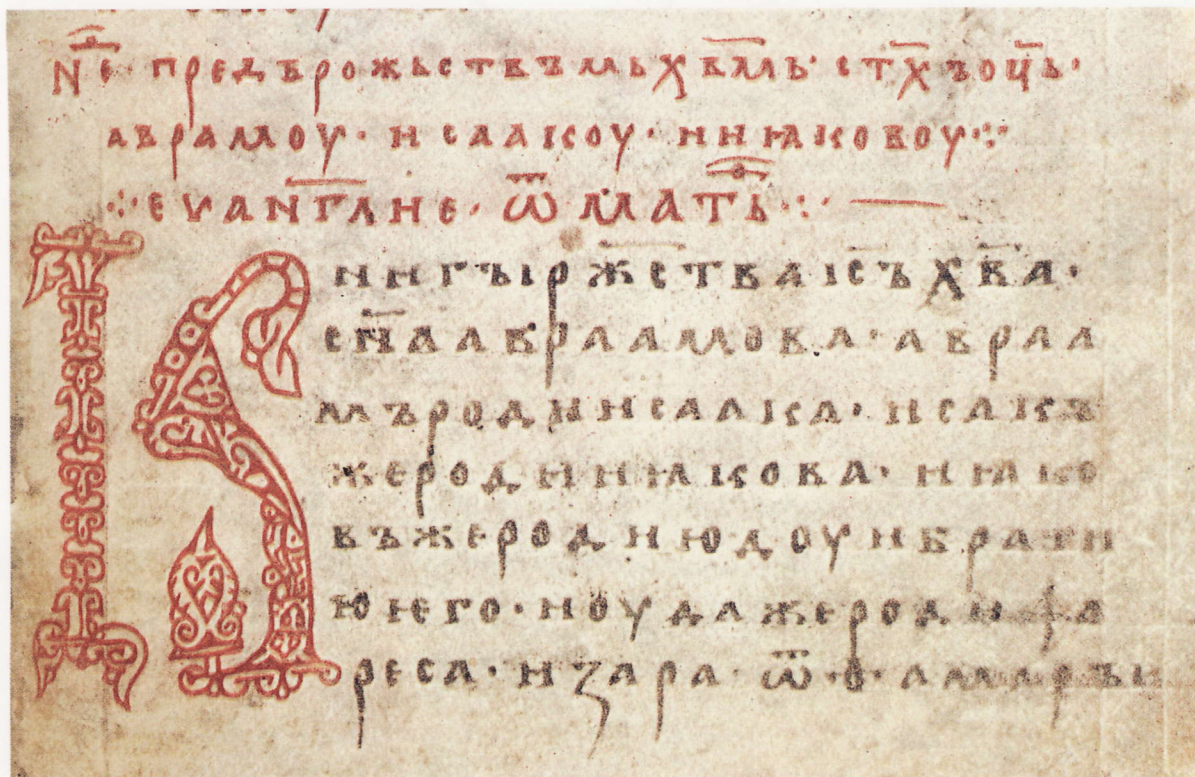 Н҃е · предърожьствъмь х҃вмь · ст҃хъ оц҃ь ·
аврамоу · исаакоу · и иꙗковоу ·:·
·:· еѵанг҃лие · ѿ мат҃ѳ ·:·
Книгы рж҃ства іс҃ъ х҃ва ·
сн҃а авраамова · авраа
мъ роди исаака · исакъ
же роди иꙗкова · иꙗко
въ же роди юдоу и брати
ю ѥго · июуда же роди фа
реса · и зара · ѿ ѳамары и